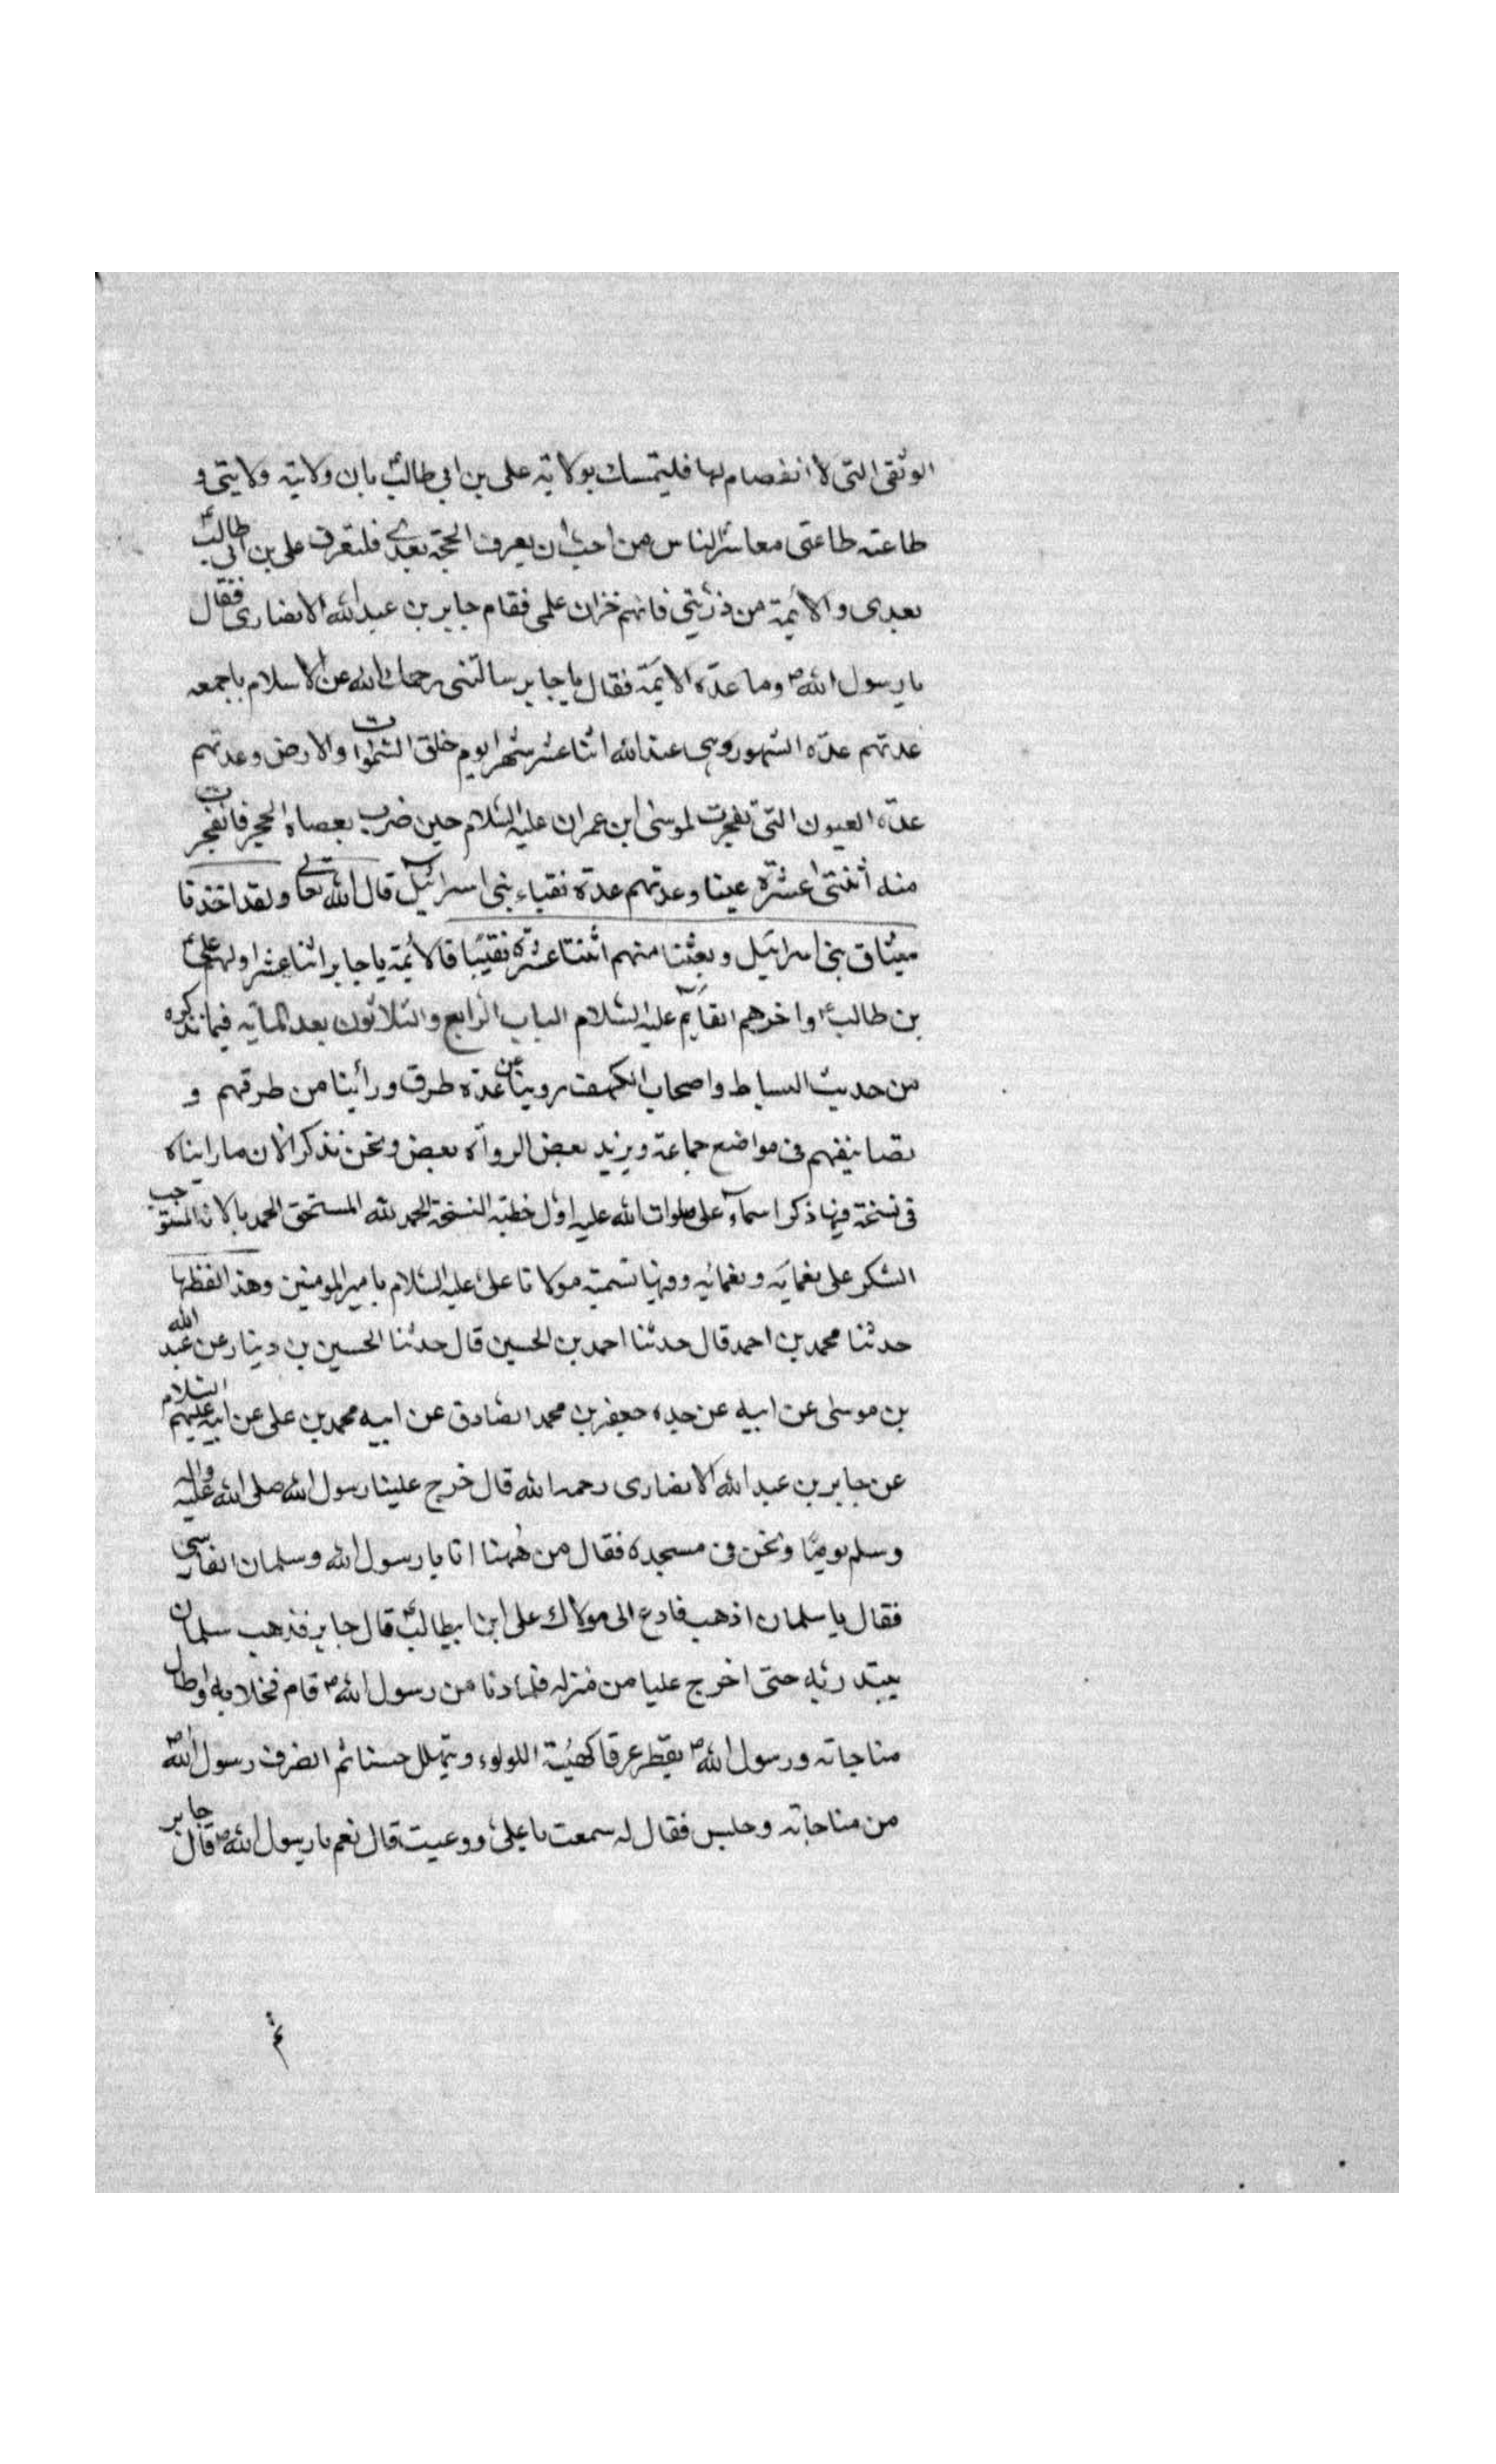 الوثقى التى لا انفصام لها فليتمسك بولاية على بن ابى طالبؑ بان ولايته ولايتى و
طاعته طاعتى معاشر الناس من احب ان يعرف الحجة بعدى فليعرف على بن ابى طالبؑ
بعدى والائمة من ذريتى فانهم خزان علمى فقام جابر بن عبد الله الانصارى فقال
يا رسول اللهؐ وما عدة الائمة فقال يا جابر سالتنى رحمك الله عن الاسلام باجمعه
عدتهم عدة الشهور وهى عند الله اثنا عشر شهرا يوم خلق السموات والارض وعدتهم
عدة العيون التى تفجرت لموسى ابن عمران عليه السلام حين ضرب بعصاه الحجر فانفجرت
منه اثنتى عشرة عينا وعدتهم عدة نقباء بنى اسرائيل قال الله تعالى ولقد اخذنا
ميثاق بنى اسرائيل وبعثنا منهم اثنتا عشرة نقيبا فالائمة يا جابر اثنا عشر اولهم علىؑ
بن طالبؑ واخرهم القايم عليه السلام الباب الرابع والثلاثون بعد الماٮة فيما نذكره
من حديث البساط واصحاب الكهف روينا عن عدة طرق ورأينا من طرقهم و
تصانيفهم فى مواضع جماعة ويزيد بعض الرواة بعض ونحن نذكر الان ما رايناه
فى نسخة فيها ذكر اسماء على صلوات الله عليه اول خطبة النسخة الحمد لله المستحق الحمد بالائه المستوجب
الشكر على نعمايه ونعمائه وفيها تسمية مولانا على عليه السلام بامير المومنين وهذا لفظها
حدثنا محمد بن احمد قال حدثنا احمد بن الحسين قال حدثنا الحسين بن دينار عن عبد الله
بن موسى عن ابيه عن جده جعفر بن محمد الصادق عن ابيه محمد بن على عن ابيه عليهم السلام
عن جابر بن عبد الله الانصارى رحمه الله قال خرج علينا رسول الله صلى الله عليه واله
وسلم يوما ونحن فى مسجده فقال من ههنا انا يا رسول الله وسلمان الفارسى
فقال يا سلمان اذهب فادع الى مولاك على ابن ابيطالبؑ قال جابر فذهب سلمان
يبتدر به حتى اخرج عليا من منزله فلما دنا من رسول اللهؐ قام فخلا به اوطال
مناجاته ورسول اللهؐ يقطر عرقا كهيئة اللولوء ويتهلل حسنا ثم انصرف رسول اللهؐ
من مناجاته وجلس فقال له سمعت يا على ووعيت قال نعم يا رسول اللهؐ قال جابر